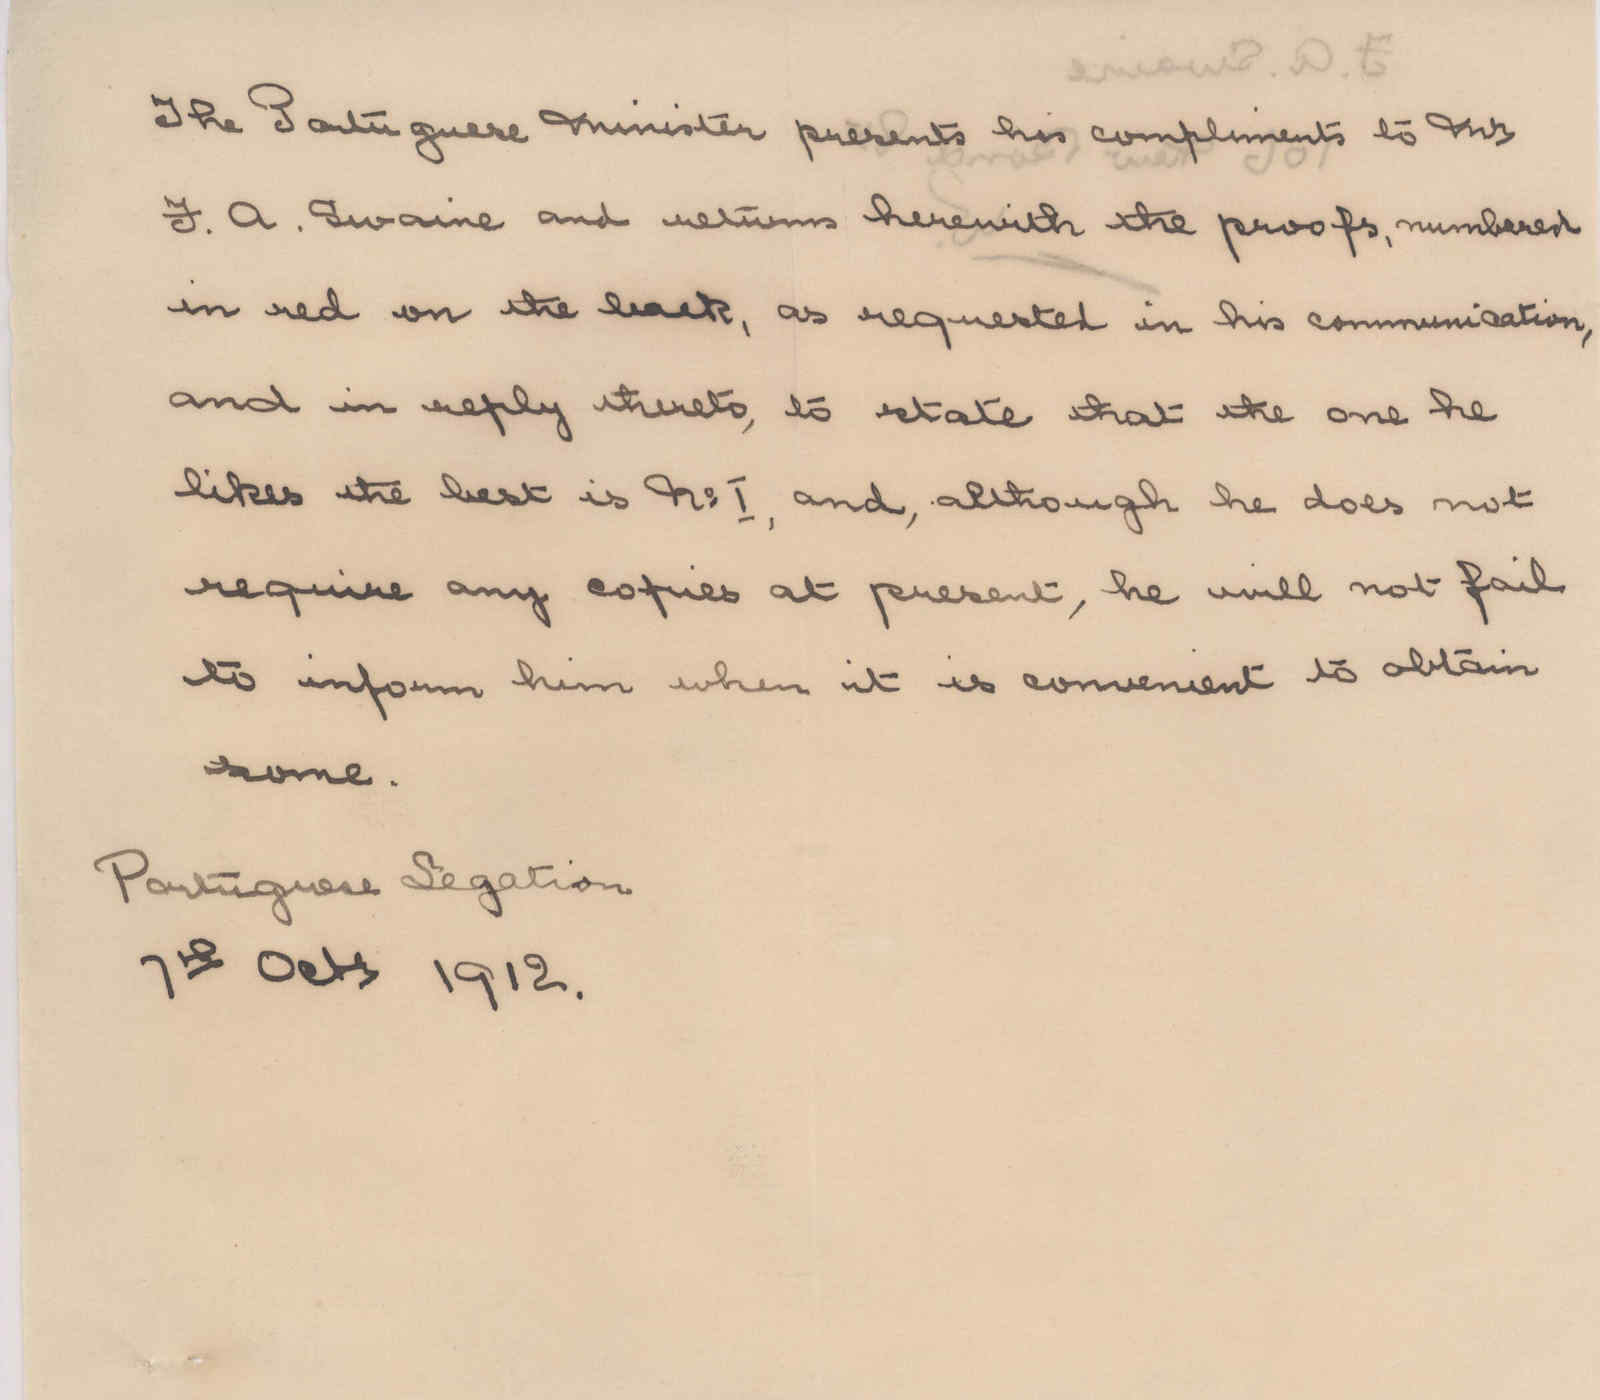 The Portuguese Minister presents his compliments to Mr
F. A. Swaine and returns herewith the proofs, numbered
in red on the back, as requested in his communication,
and in reply thereto, to state that the one he
likes the best is No I, and, although he does not
require any copies at present, he will not fail
to inform him when it is convenient to obtain
some.
Portuguese Legation
7th Octr 1912.
F. A. Swaine
New Bond